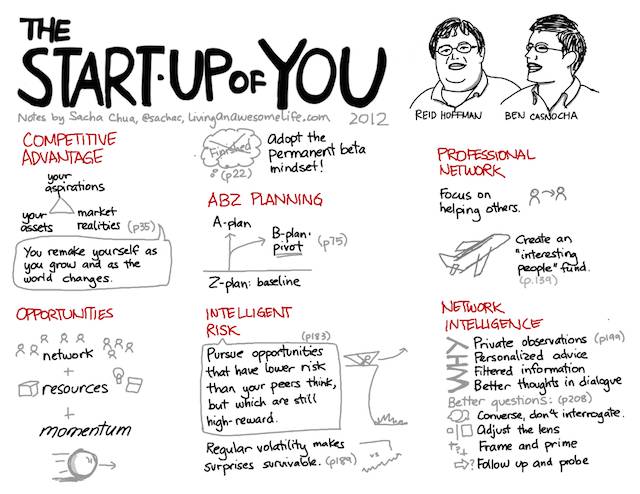 THE
START-UP OF YOU
Notes by Sacha Chua, @sachac, LivingAnAwesomeLife.com 2012
REID HOFFMAN BEN CASNOCHA
COMPETITIVE
ADVANTAGE
your
aspirations
your
assets
market
realities (p35)
You remake yourself as
you grow and as the
world changes.
Finished
(p22)
Adopt the
permanent beta
mindset!
ABZ PLANNING
A-plan
B-plan:
pivot
(p75)
Z-plan: baseline
PROFESSIONAL
NETWORK
Focus on
helping others.
Create an
"interesting
people" fund.
(p.139)
OPPORTUNITIES
network
+
resources
+
momentum
INTELLIGENT
RISK
(p183)
Pursue opportunities
that have lower risk
than your peers think,
but which are still
high-reward.
Regular volatility makes
surprises survivable. (p189)
vs
NETWORK
INTELLIGENCE
WHY
Private observations (p199)
Personalized advice
Filtered information
Better thoughts in dialogue
Better questions: (p208)
Converse, don't interrogate.
Adjust the lens
Frame and prime
Follow up and probe